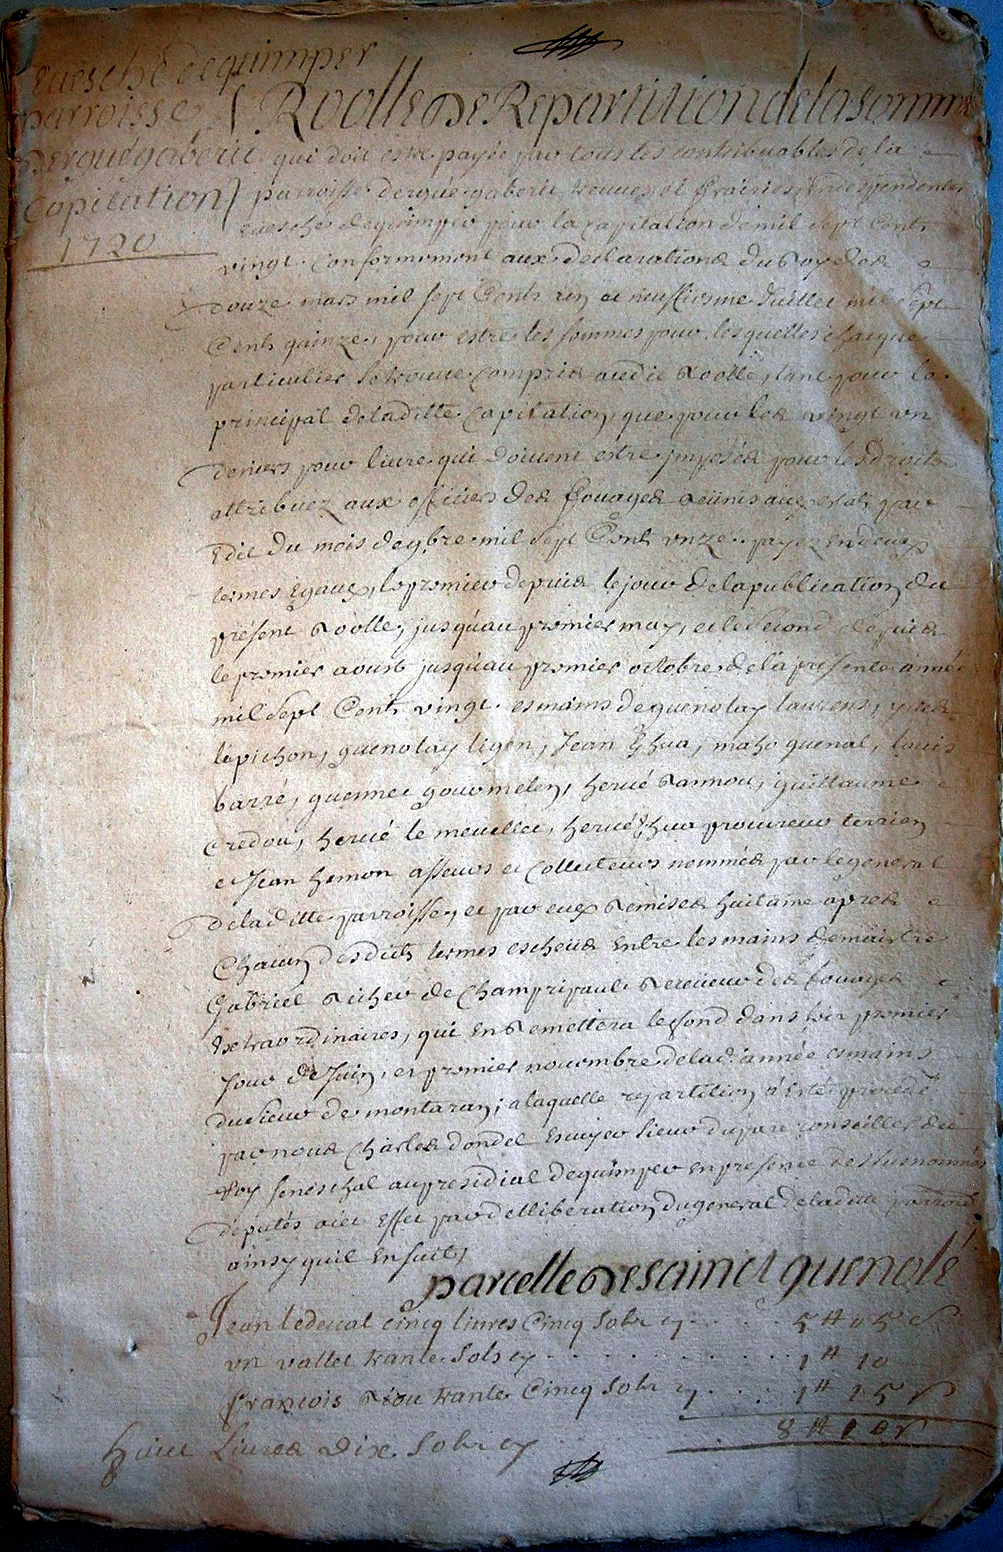 Evesché de quimper
parroisse
Dergué gaberic
Capitation
1720
Roolle de Repartition de la somme
qui doit estre payée par tous les contribuables de la
parroisse dergué gaberic, treuves et frairies en despendentes
evesché de quimper pour la capitation de mil sept cents
vingt conformement aux declarations du Roy des
douze mars mil sept Cents un et neuffiesme Juillet mil sept
Cents quinze, pour estre les sommes pour lesquelles chaque
particulier se trouve compris audit Roolle, tant pour le
principal de laditte Capitation, que pour les vingt un
deniers pour livre qui doivent estre jmposés pour les droits
attribuez aux officiers des fouages reünis aux estats par
Edit du mois de 9bre mil sept Cents unze payez en deux
termes Egaux, le premier depuis le jour de la publication du
present Roolle, jusqu'au premier may, et le second depuis
le premier aoust jusquau premier octobre de la presente année
mil sept Cents vingt es mains de guenolay laurens, yves
le pichon, guenolay ligen, Jean huá, maho quenal, louis
barré, guennec gourmelen, hervé Rannou, guillaume
Credou, hervé le meuellec, hervé huá procureur terrien
et Jean hemon asseurs et Collecteurs nommés par le general
de laditte parroisse, et par eux Remises huitaine apres
Chacun desdits termes escheus Entre les mains de maistre
Gabriel Richer de Champripault Receveur des fouages
Extraordinaires, qui En Remettera le fond dans les premier
Jour de Juin, et premier novembre de lad. année es mains
du sieur de montaran; a laquelle repartition a Esté procedé
par nous Charles dondel Escuyer sieur du parc conseiller du
Roy seneschal au presidial de quimper en presence des susnommés
deputés a cet Effet par delliberation du general de laditte parroisse
ainsy quil Ensuit,
parcelle de sainct guenolé
Jean le deuat cinq livres Cinq sols cy 5 # 05 s
un vallet trante sols cy 1 # 10
françois Riou trante Cinq sols cy 1 # 15 s
8 # 10 s
huict Livres Dix sols cy